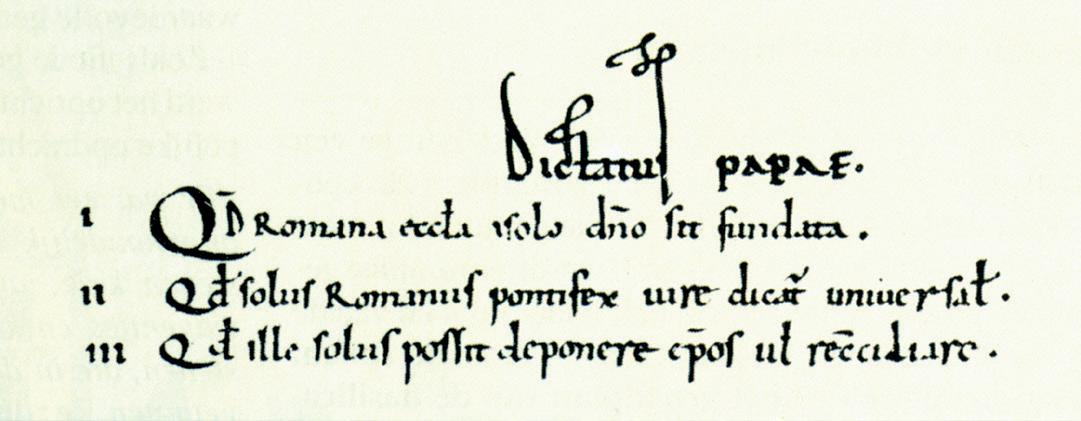 Dictatus papae.
I QD Romana eccła a solo dn̄o sit fundata.
II Qđ solus Romanus pontifex iure dicat universał.
III Qđ ille solus possit deponere ep̄os uł rec̄ciliare.